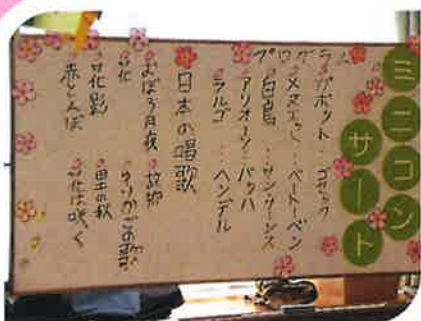 ミニコン
サート
プログラム
ガボット…ゴセック
メヌエット…ベートーベン
白鳥…サン・サーンス
アリオーソ…バッハ
ラルゴ…ヘンデル
日本の唱歌
おぼろ月夜 故郷
花 ゆりかごの歌
花影 里の秋
赤とんぼ 花は咲く